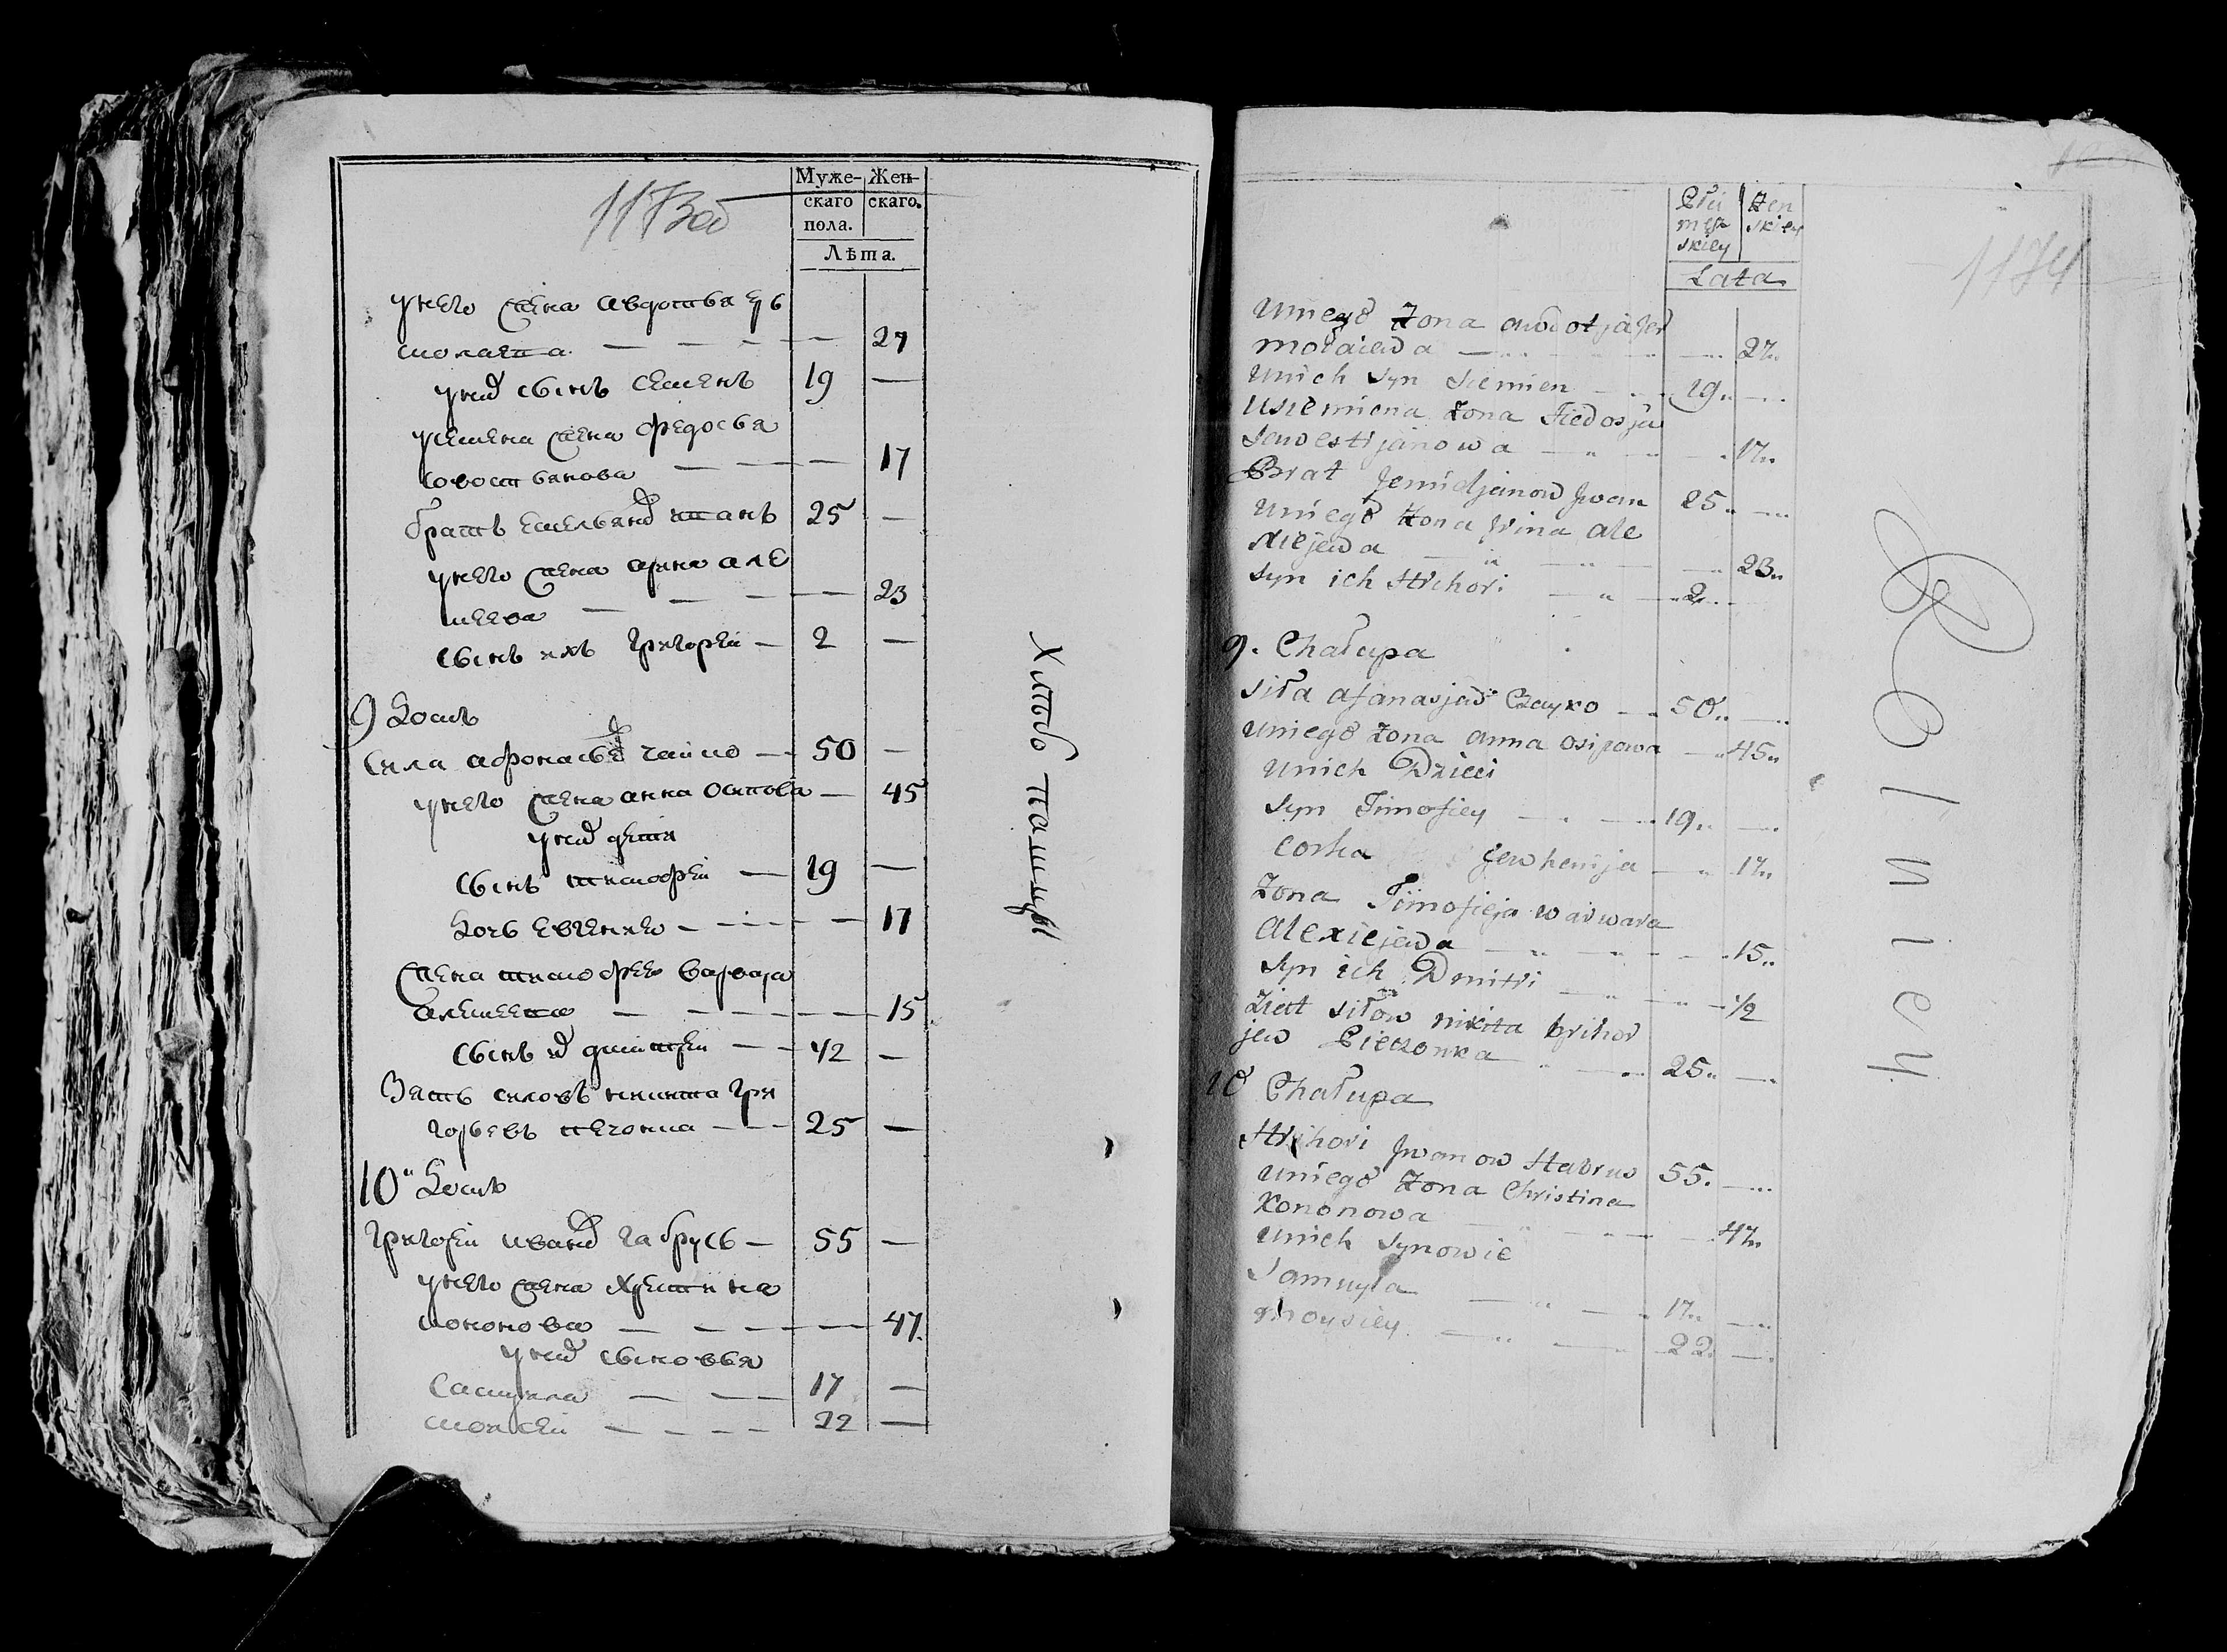 1173об
Муже- Жен-
скаго скаго.
пола.
Лѣта.
у него жена авдотья ер
молаева — — — — 27
у них сынъ семенъ 19 —
у семена жена федосья
совостьянова — — — 17
братъ емельянов иванъ 25 —
у него жена арина але
ксеева — — — — 23
сынъ ихъ григорей — 2 —
9 домъ
сила афонасьев чайко — 50 —
у него жена анна осипова — 45
у них дети
сынъ тимофей — 19 —
дочь евгения — — — — 17
жена тимофея варвара
алексеева — — — — 15
сынъ их дмитрей — — 1/2 —
зять силовъ никита гри
горьевъ печонка — — 25 —
10 домъ
григорей иванов габрусь — 55 —
у него жена христина
кононова — — — — 47.
у них сыновья
самуила — — — 17 —
моисей — — — — 22 —
Хлѣбо пашцы
1174
Płci Żen
męs skiey
skiey
Lata
Uniego Żona awdotja Jer
mołaiewa — — 27
Unich syn Siemien — 19 —
Usiemiena Żona Fiedosja
Sewestjanowa — — 17
Brat Jemidjanow Jwan 25 —
Uniego Żona Jrina ale
xiejewa — — 23
syn ich Hrihori — — 2 —
9. Chałupa
Siła afanasjew Czayko — 50 —
Uniego Żona anna osipowa — 45
Unich Dzieci
Syn Timofiey — — 19 —
Corka Jewhenija — — 17
Żona Timofieja warwara
Alexiejewa — — 15
Syn ich Dmitri — — 1/2
Zięt siłow nikita hrihor
jew Pieczonka — — 25 —
10 Chałupa
Hrihori Jwanow Habrus 55. —
Uniego Żona Christina
Kononowa — — 47
Unich Synowie
Samuyła — — 17 —
Moysiey — — 22 —
Rolnicy